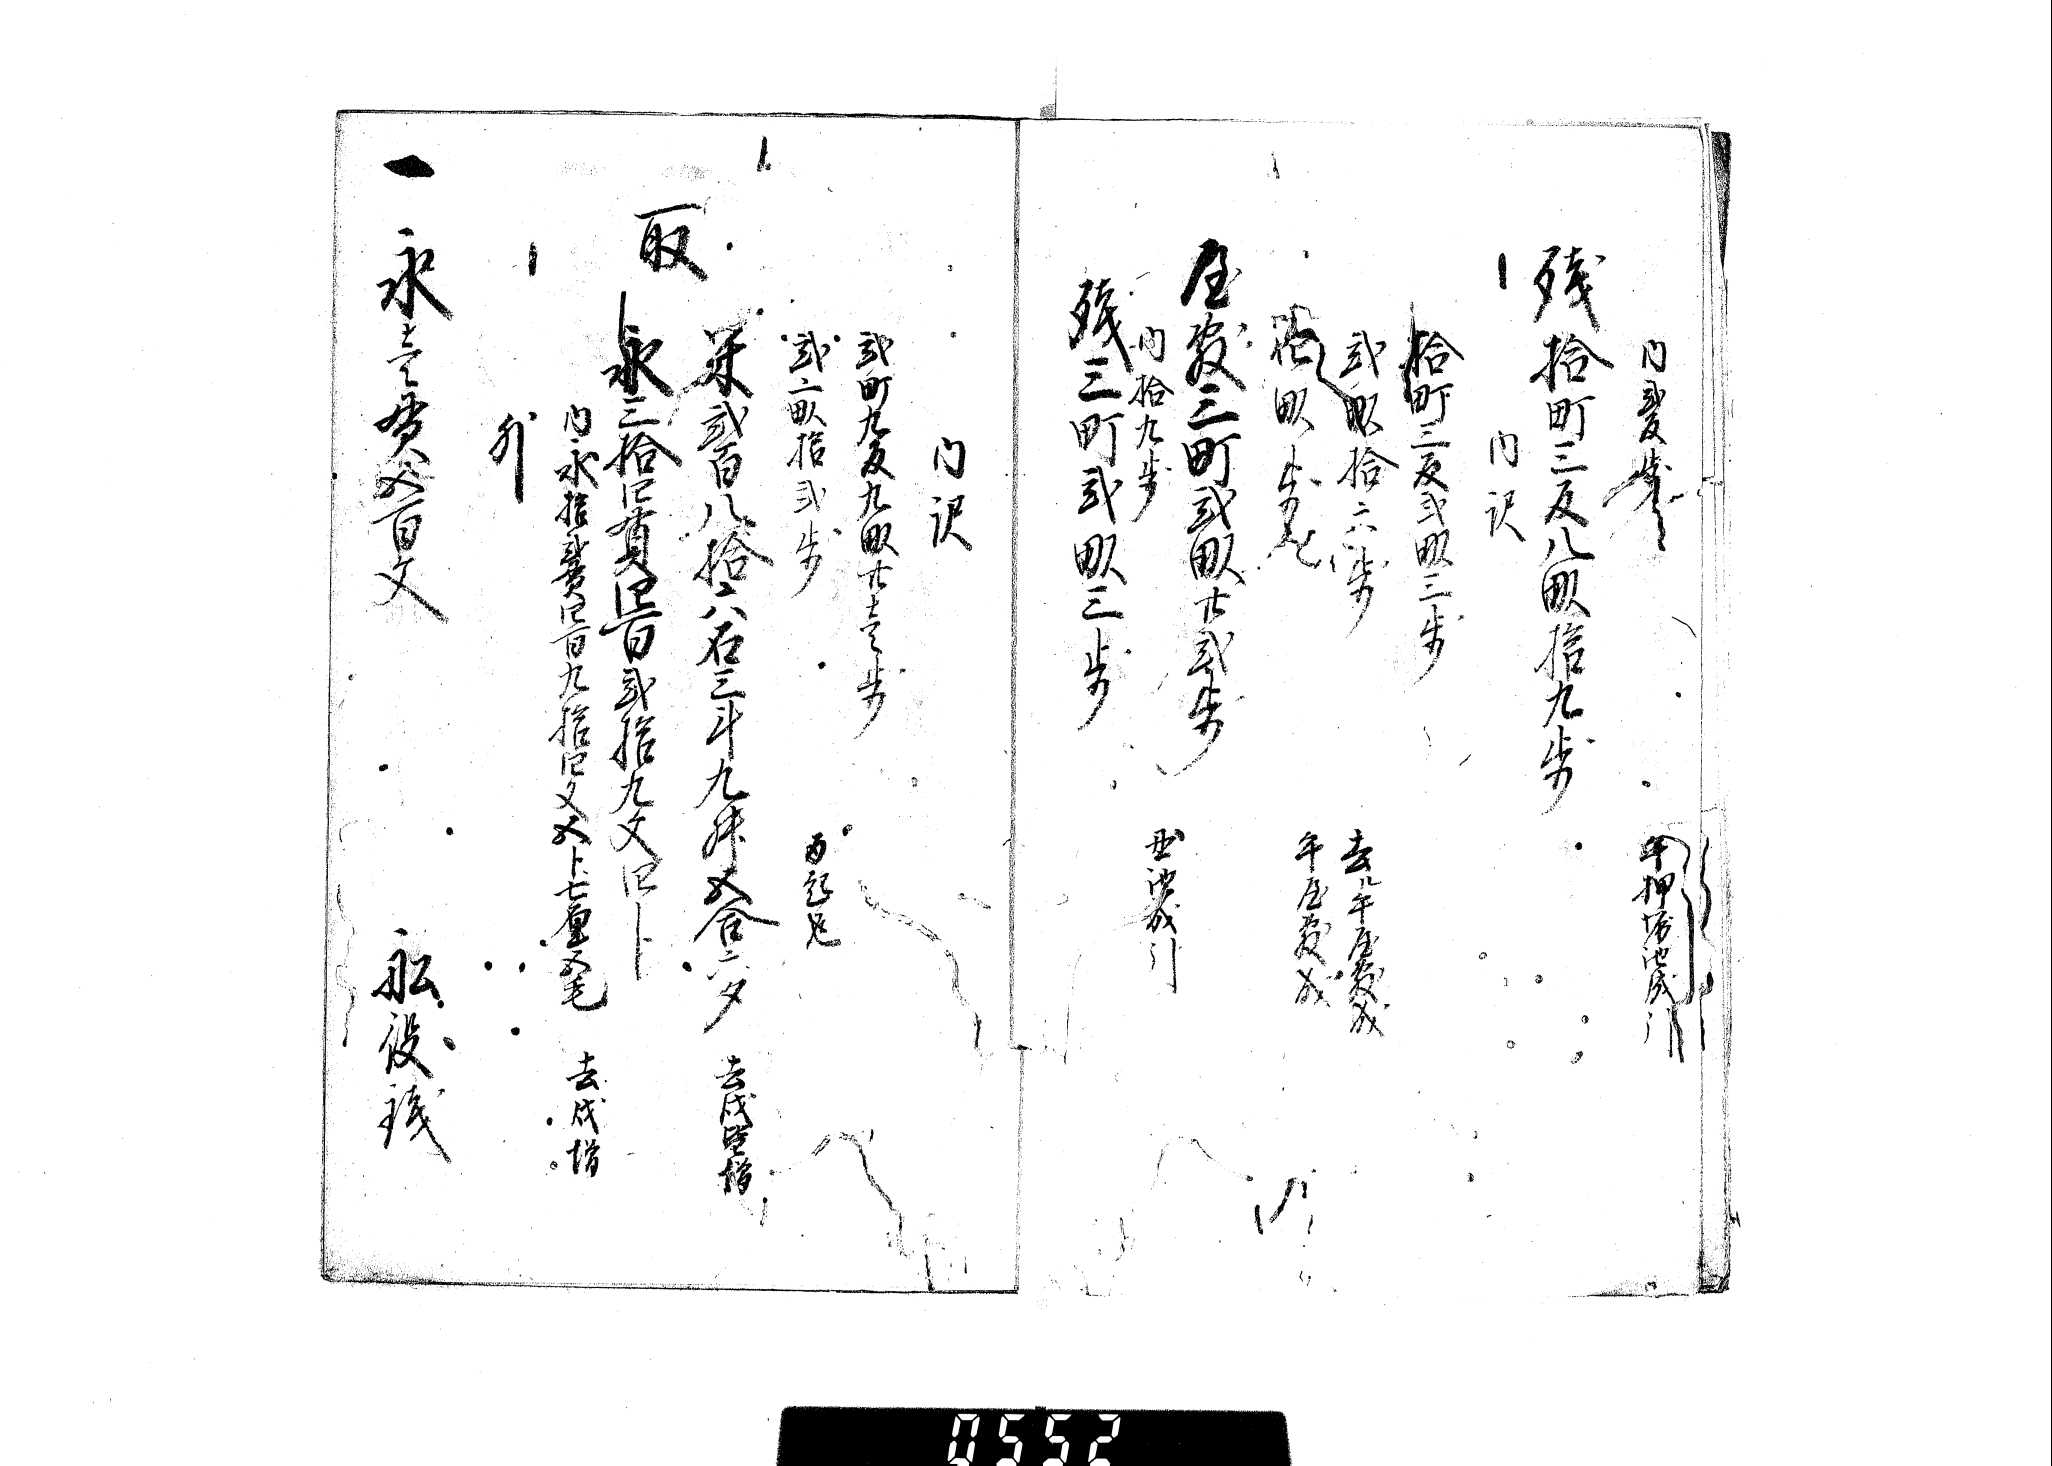 内弐畝歩
午押堀池成引
残拾町三反八畝拾九歩
内訳
拾町三反弐畝三歩
弐畝拾六歩
去ル午屋敷成
拾畝歩
午屋敷成
屋敷三町弐畝廿弐歩
内拾九歩
溜池成引
残三町弐畝三歩
内訳
弐町九反九畝廿壱歩
弐畝拾弐歩
酉起返
取
米弐百八拾六石三斗九升五合六夕
去戌増
永三拾四貫四百弐拾九文四卜
内永拾弐貫四百九拾四文五卜七厘五毛
去戌増
外
一永壱貫五百文
船役銭
0552